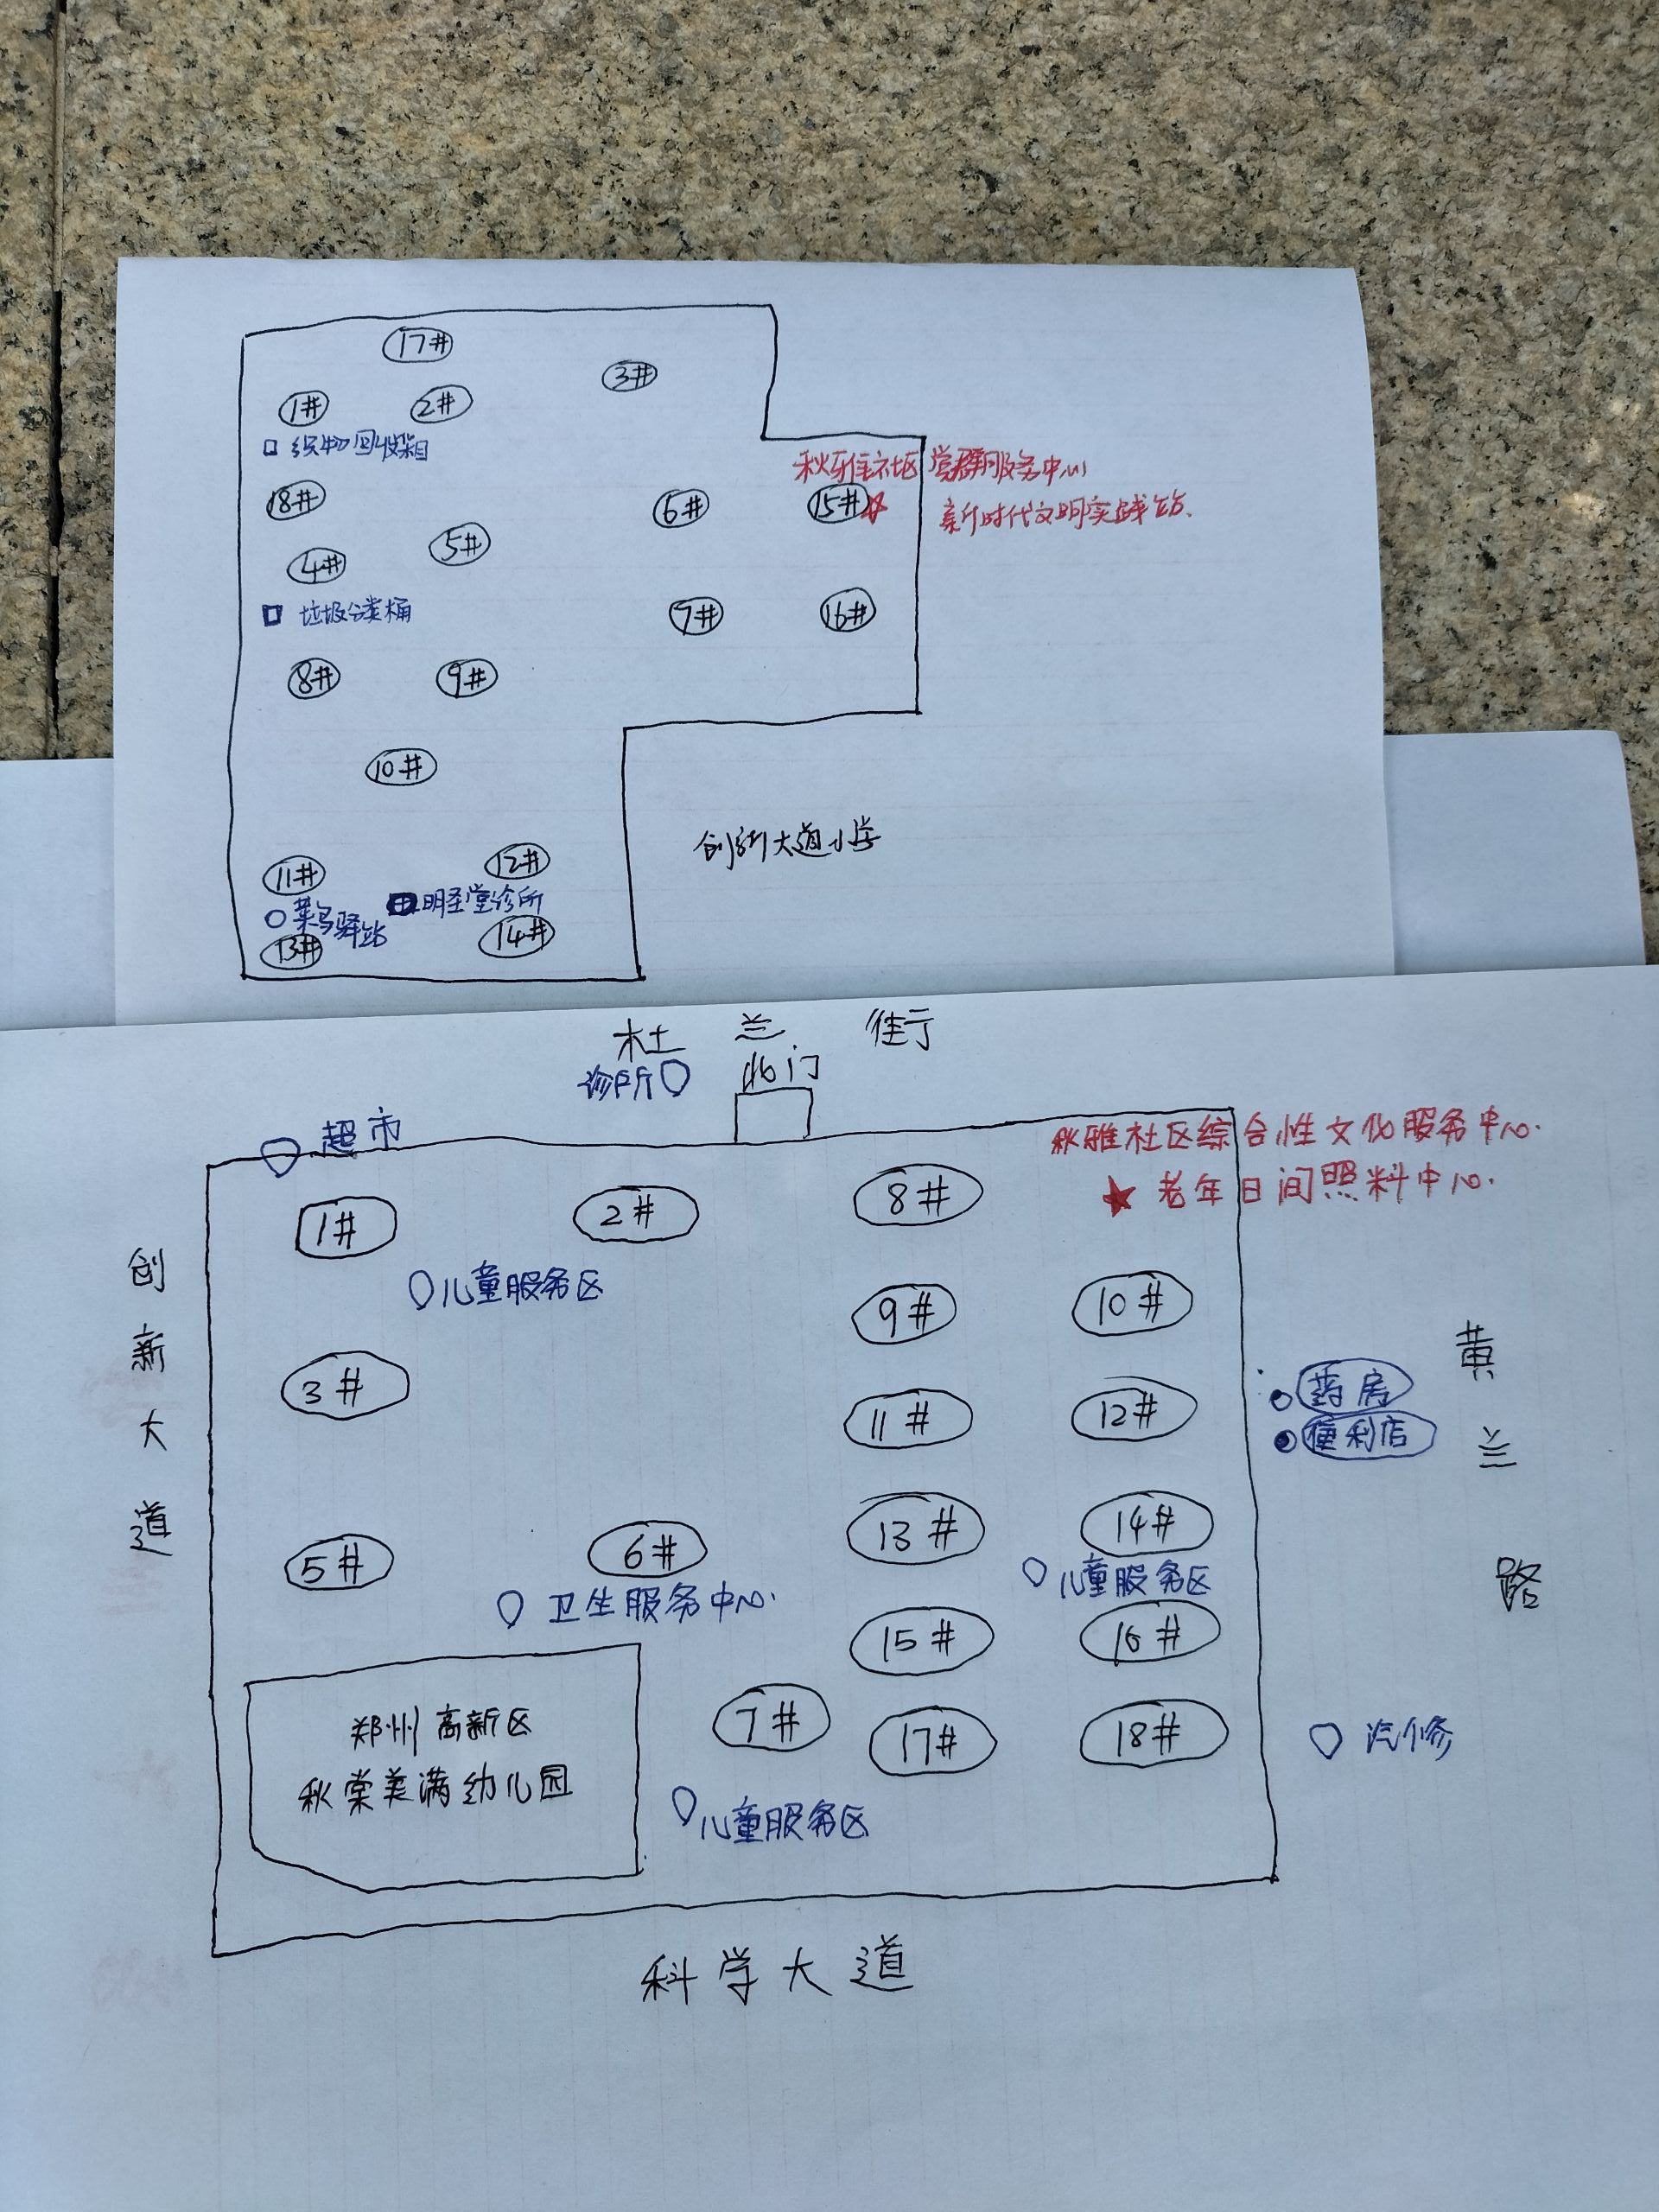 17#
3#
1#
2#
织物回收箱
秋雅社区党群服务中心
18#
6#
15#
新时代文明实践站.
5#
4#
垃圾分类桶
7#
16#
8#
9#
10#
创新大道小学
11#
12#
菜鸟驿站
明圣堂诊所
13#
14#
杜兰街
诊所
北门
超市
秋雅社区综合性文化服务中心.
老年日间照料中心.
1#
2#
8#
创新大道
儿童服务区
9#
10#
黄兰路
3#
药房
11#
12#
便利店
5#
6#
13#
14#
卫生服务中心.
儿童服务区
15#
16#
郑州高新区
秋棠美满幼儿园
7#
17#
18#
汽修
儿童服务区
科学大道